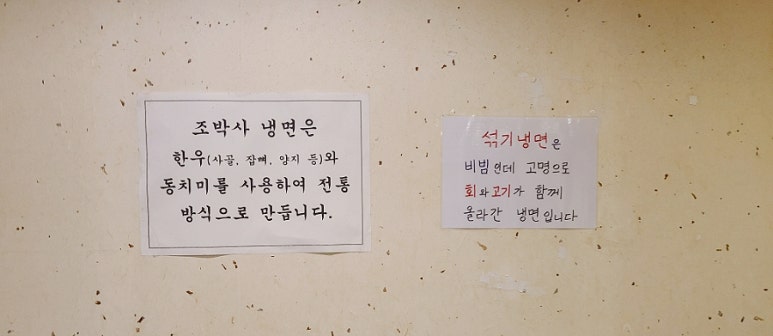 조박사 냉면은
한우(사골, 잡뼈, 양지 등)와
동치미를 사용하여 전통
방식으로 만듭니다.
섞기냉면은
비빔인데 고명으로
회와고기가 함께
올라간 냉면입니다